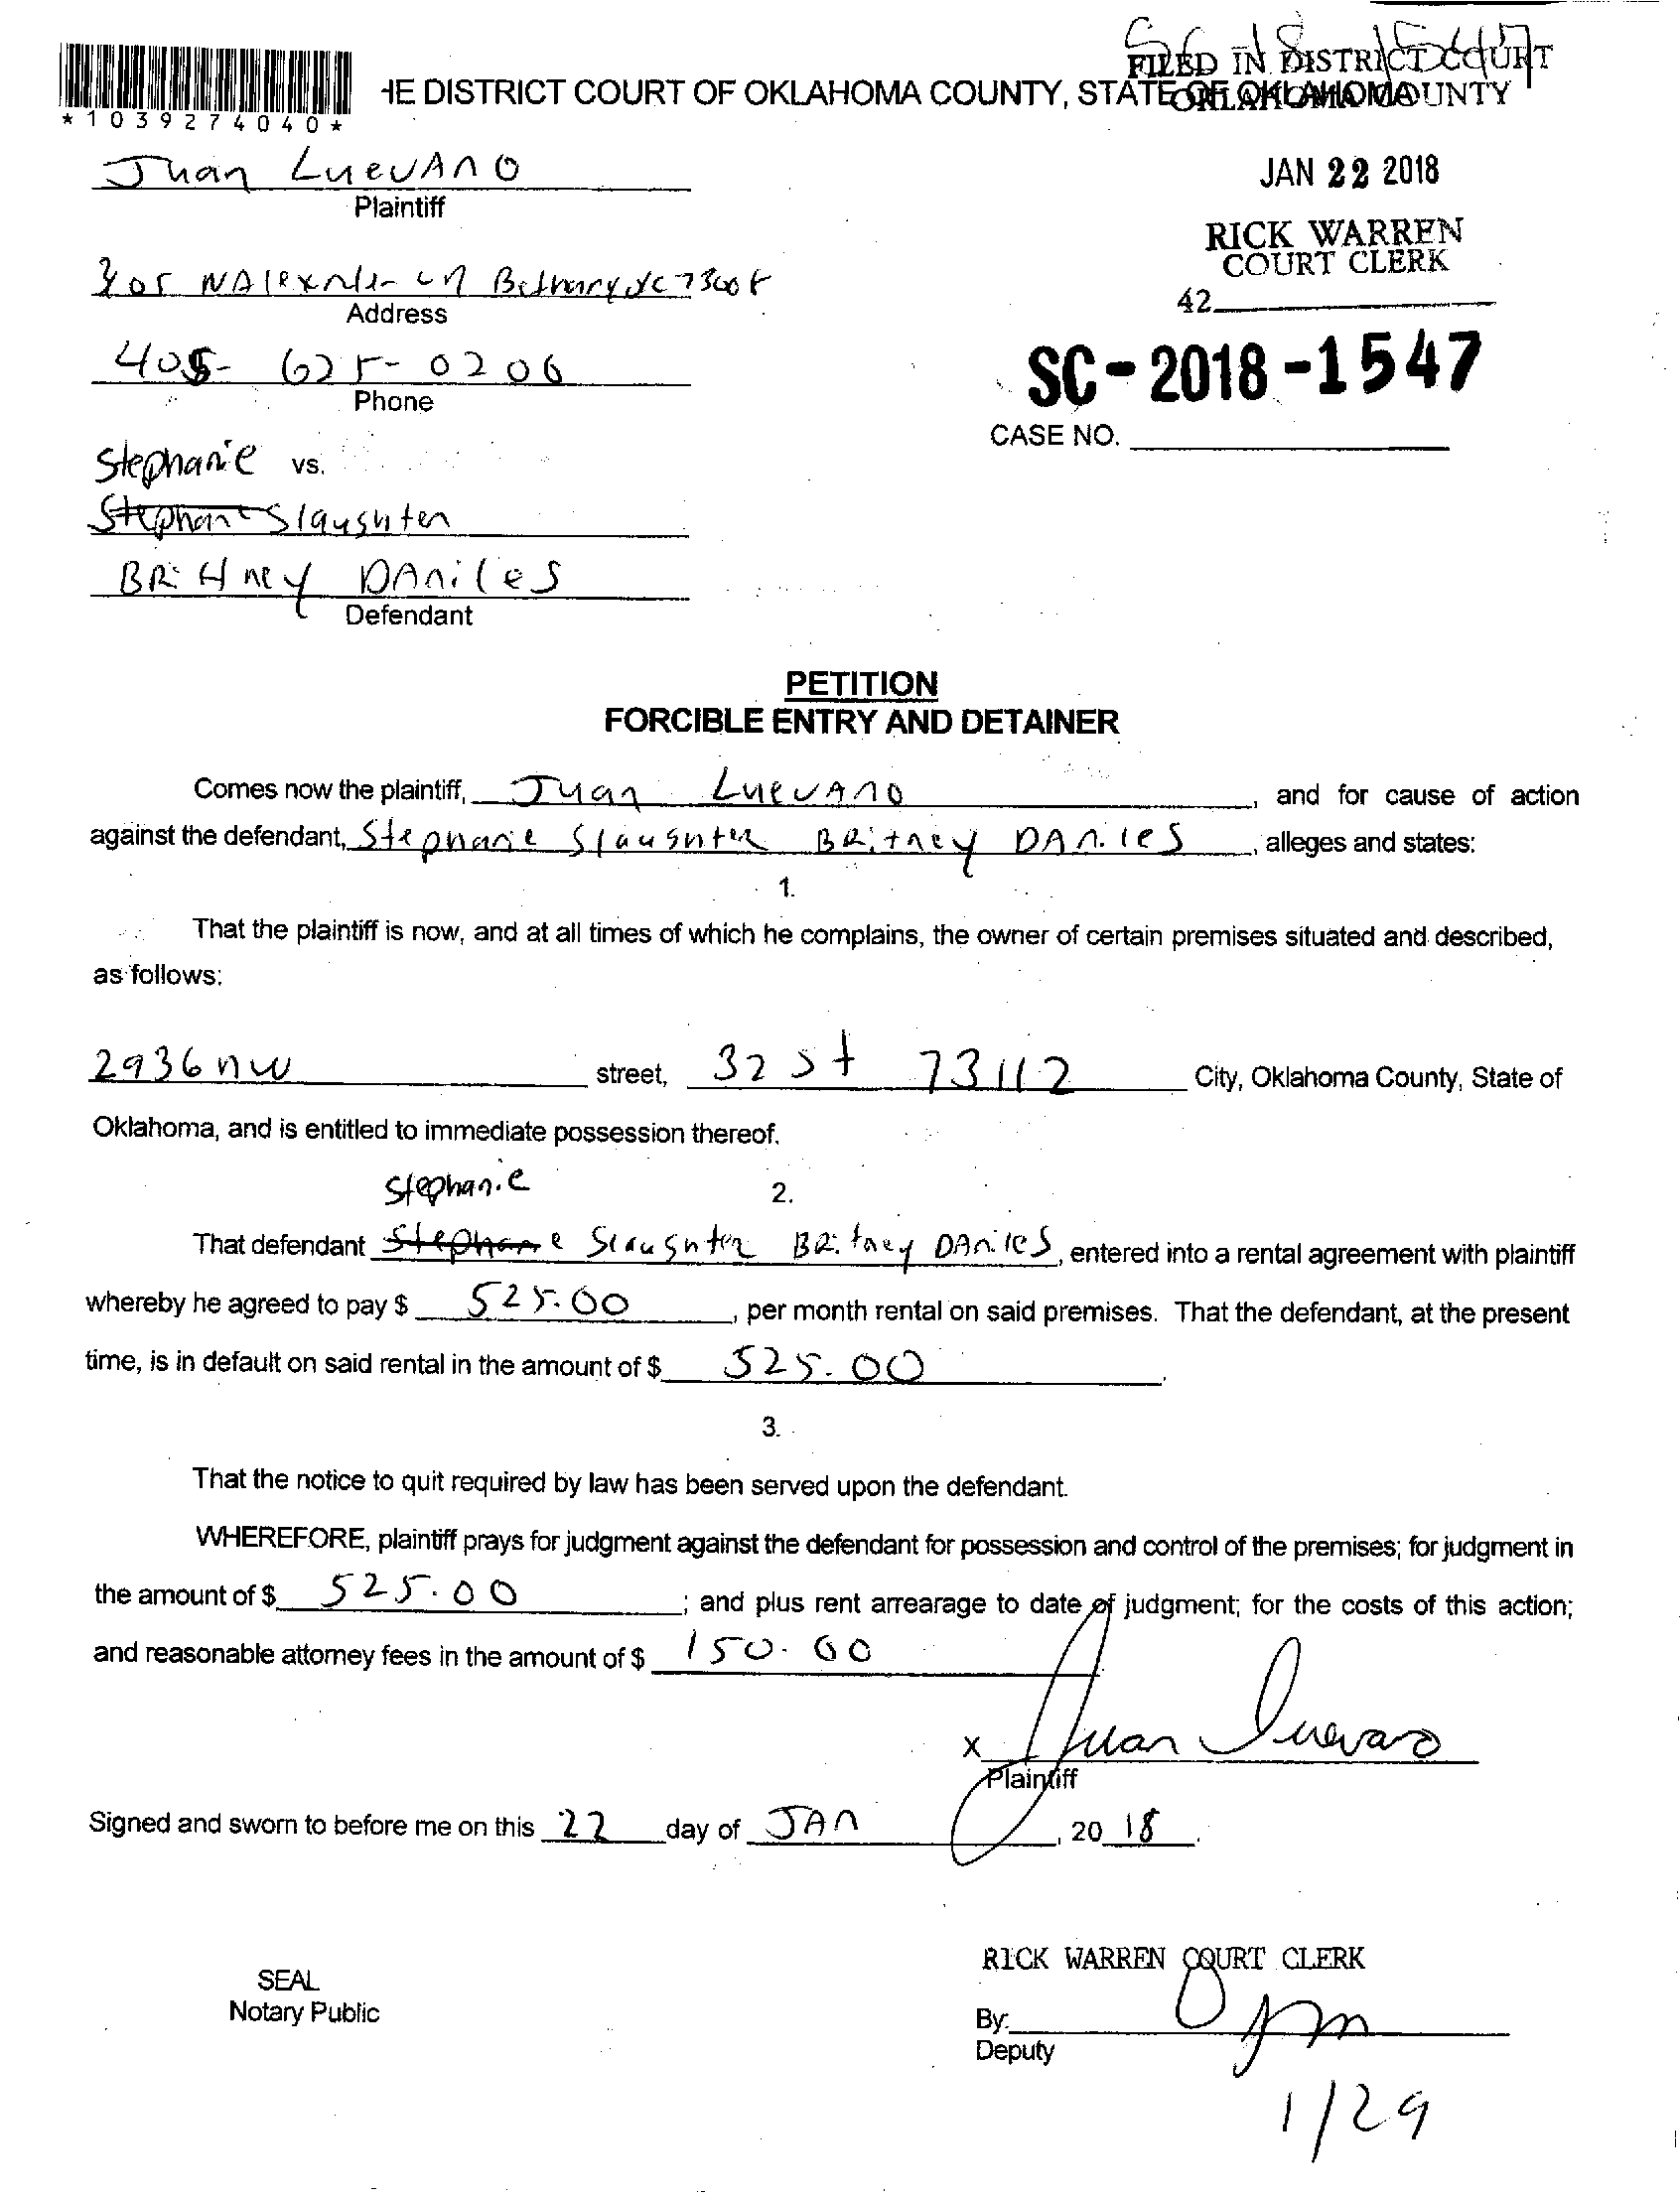 FILED IN DISTRICT COURT
HE DISTRICT COURT OF OKLAHOMA COUNTY, STATE OF OKLAHOMA
OKLAHOMA COUNTY
*1039274040*
Juan Luevano
Plaintiff
JAN 22 2018
RICK WARREN
COURT CLERK
42
Bethany
Address
405-625-0206
Phone
SC-2018-1547
CASE NO.
Stephanie vs.
Slaughter
Brittney Daniles
Defendant
PETITION
FORCIBLE ENTRY AND DETAINER
Comes now the plaintiff, Juan Luevano, and for cause of action
against the defendant, Stephanie Slaughter Britney Daniles, alleges and states:
1.
That the plaintiff is now, and at all times of which he complains, the owner of certain premises situated and described,
as follows:
2936 nw street, 32 st 73112 City, Oklahoma County, State of
Oklahoma, and is entitled to immediate possession thereof.
Stephanie
2.
That defendant Stephane Slaughter Britney Daniles, entered into a rental agreement with plaintiff
whereby he agreed to pay $ 525.00, per month rental on said premises. That the defendant, at the present
time, is in default on said rental in the amount of $ 525.00.
3.
That the notice to quit required by law has been served upon the defendant.
WHEREFORE, plaintiff prays for judgment against the defendant for possession and control of the premises; for judgment in
the amount of $ 525.00; and plus rent arrearage to date of judgment; for the costs of this action;
and reasonable attorney fees in the amount of $ 150.00
X Juan Luevano
Plaintiff
Signed and sworn to before me on this 22 day of JAN, 20 18.
RICK WARREN COURT CLERK
SEAL
Notary Public
By:
Deputy
1/29